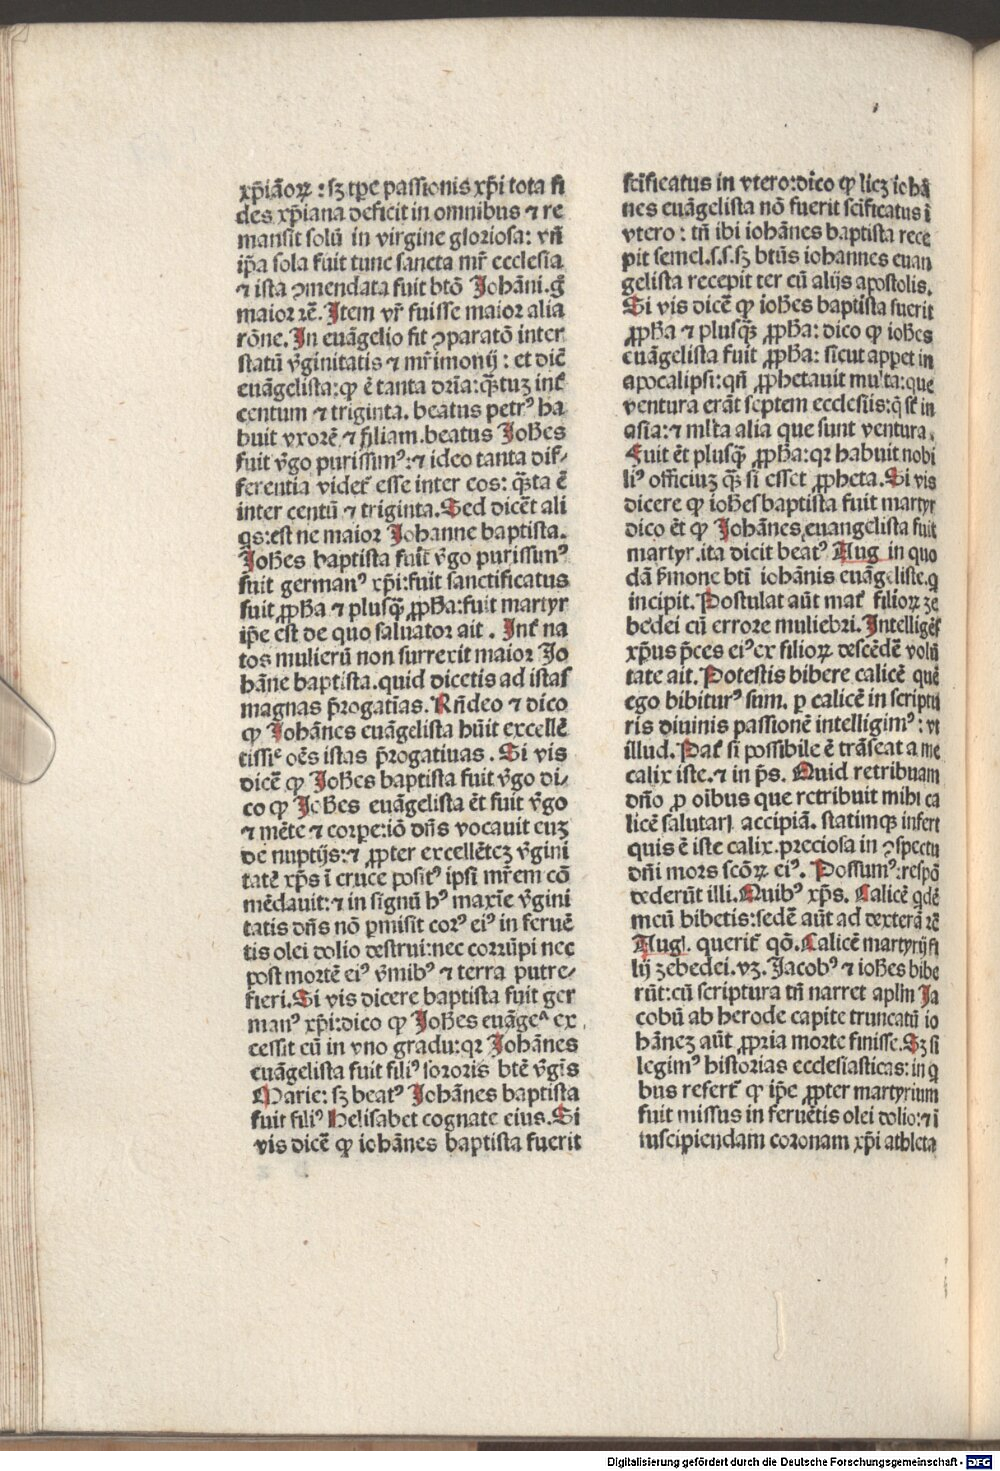 xp̄iāoꝝ : sꝫ tꝑe passionis xp̄i tota fi
des xp̄iana deficit in omnibus ⁊ re
mansit solū in virgine gloriosa: vn̄
ip̄a sola fuit tunc sancta mr̄ ecclesia
⁊ ista ꝯmendata fuit btō Johāni. g̊
maior rē. Item vr̄ fuisse maior alia
rōne. In euāgelio fit ꝯparatō inter
statū v̄ginitatis ⁊ mr̄imonij : et dic̄
euāgelista: ꝙ ē tanta dr̄ia: q̄ꝫtuꝫ int̄
centum ⁊ triginta. beatus petrꝰ ha
buit vxorē ⁊ filiam. beatus Joh̄es
fuit v̄go purissimꝰ: ⁊ ideo tanta dif⸗
ferentia videt᷑ esse inter eos: q̄ꝫta ē
inter centū ⁊ triginta. Sed dicēt ali
qs: est ne maior Johanne baptista.
Joh̄es baptista fuit v̄go purissimꝰ
fuit germanꝰ xp̄i: fuit sanctificatus
fuit ꝓph̄a ⁊ plusq̄ꝫ ꝓph̄a: fuit martyr
ip̄e est de quo saluator ait . Int̄ na
tos mulierū non surrexit maior Jo
hāne baptista. quid dicetis ad istas
magnas p̄rogatīas. Rn̄deo ⁊ dico
ꝙ Johānes euāgelista hūit excellē
tissie oēs istas p̄rogatiuas . Si vis
dicē ꝙ Joh̄es baptista fuit v̄go di⸗
co ꝙ Joh̄es euāgelista ēt fuit v̄go
⁊ mēte ⁊ corꝑe: iō dn̄s vocauit euꝫ
de nuptijs: ⁊ ꝓpter excellēteꝫ v̄gini
tatē xp̄s ī cruce positꝰ ipsi mr̄em cō
mēdauit: ⁊ in signū hꝰ maxīe v̄gini
tatis dn̄s nō ꝑmisit corꝰ eiꝰ in feruē
tis olei dolio destrui: nec corrūpi nec
post mortē eiꝰ v̄mibꝰ ⁊ terra putre⸗
fieri. Si vis dicere baptista fuit ger
manꝰ xp̄i: dico ꝙ Joh̄es euāgeᵃ ex
cessit eū in vno gradu: qꝛ Johānes
euāgelista fuit filiꝰ sororis btē v̄gīs
Marie: sꝫ beatꝰ Johānes baptista
fuit filiꝰ Helisabet cognate eius. Si
vis dicē ꝙ iohānes baptista fuerit
sc̄ificatus in vtero: dico ꝙ licꝫ iohā
nes euāgelista nō fuerit sc̄ificatus ī
vtero : tn̄ ibi iohānes baptista rece
pit semel. s. s. sꝫ btūs iohannes euan
gelista recepit ter cū alijs apostolis.
Si vis dicē ꝙ ioh̄es baptista fuerit
ꝓph̄a ⁊ plusq̄ꝫ ꝓph̄a: dico ꝙ ioh̄es
euāgelista fuit ꝓph̄a: sicut apꝑet in
apocalipsi: qn̄ ꝓphetauit multa: que
ventura erāt septem ecclesiis: q̄ st̄ in
asia: ⁊ ml̄ta alia que sunt ventura.
Fuit ēt plusq̄ꝫ ꝓph̄a: qꝛ habuit nobi
liꝰ officiuꝫ q̄ꝫ si esset ꝓpheta. Si vis
dicere ꝙ ioh̄es baptista fuit martyr
dico ēt ꝙ Johānes euangelista fuit
martyr. ita dicit beatꝰ Aug in quo
dā s̄mone bti iohānis euāgeliste. q
incipit. Postulat aūt mat̄ filioꝝ ze
bedei cū errore muliebri. Intelligēs
xp̄us p̄ces eiꝰ ex filioꝝ descēdē volū
tate ait. Potestis bibere calicē quē
ego bibiturꝰ sum. ꝑ calicē in scriptu
ris diuinis passionē intelligimꝰ : vt
illud. Pat̄ si possibile ē trāseat a me
calix iste. ⁊ in ps̄. Quid retribuam
dn̄o ꝓ oībus que retribuit mihi ca
licē salutarꝭ accipiā. statimqꝫ infert
quis ē iste calix. preciosa in ꝯspectu
dn̄i mors scōꝝ eiꝰ. Possumꝰ: respō
dederūt illi. Quibꝰ xp̄s. Calicē qdē
meū bibetis: sedē aūt ad dexterā rē
Aug. querit᷑ qō. Calicē martyrij fi
lij zebedei. vꝫ. Jacobꝰ ⁊ ioh̄es bibe
rūt: cū scriptura tn̄ narret apl̄m Ja
cobū ab herode capite truncatū io
hāneꝫ aūt ꝓpria morte finisse. Sꝫ si
legimꝰ historias ecclesiasticas: in q
bus refert᷑ ꝙ ip̄e ꝓpter martyrium
fuit missus in feruētis olei dolio: ⁊ ī
suscipiendam coronam xp̄i athleta
Digitalisierung gefördert durch die Deutsche Forschungsgemeinschaft - DFG